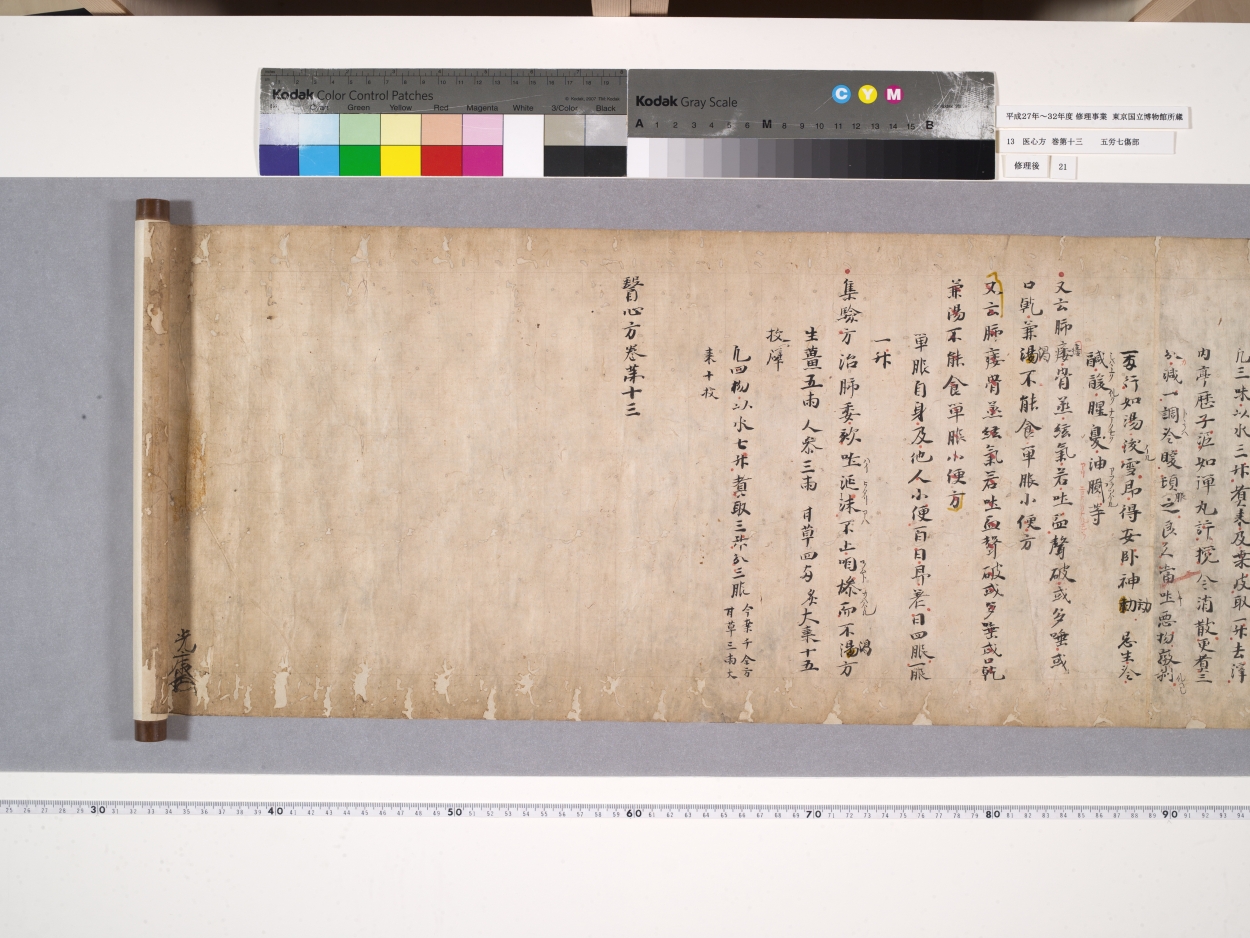 Kodak Color Control Patches
Cyan Green Yellow Red Magenta White 3/Color Black
Kodak Gray Scale
C Y M
A 1 2 3 4 5 6 M 8 9 10 11 12 13 14 15 B
平成27年～32年度 修理事業 東京国立博物館所蔵
13 医心方 巻第十三 五労七傷部
修理後 21
凡三味以水三升煮棗及桑皮取一升去滓
内亭歴子泥如弾丸許攪令消散更煮三
分減一調冷暖頓服之良久當吐悪物
行如湯沃雪即得安卧神効 忌生冷
鹹酸腥臭油膩等
又云肺痿骨蒸痃氣若吐血聲破或多唾或
口乾兼渇不能食單服小便方
又云肺痿骨蒸痃氣若吐血聲破或多唾或口乾
兼湯不能食單服小便方
單服自身及他人小便百日旱著日四服一服
一升
集驗方治肺委欬吐涎沫不止咽燥而不渇方
生薑五兩 人參三兩 甘草四兩炙 大棗十五
枚擘
凡四物以水七升煮取三升分三服 今案千金方甘草三兩大
棗十枚
醫心方巻第十三
30 40 50 60 70 80 90